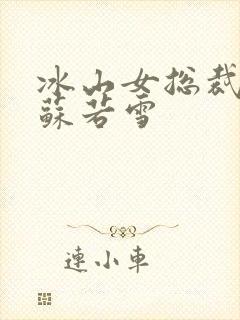 冰山女总裁
蘇若雪
連小車